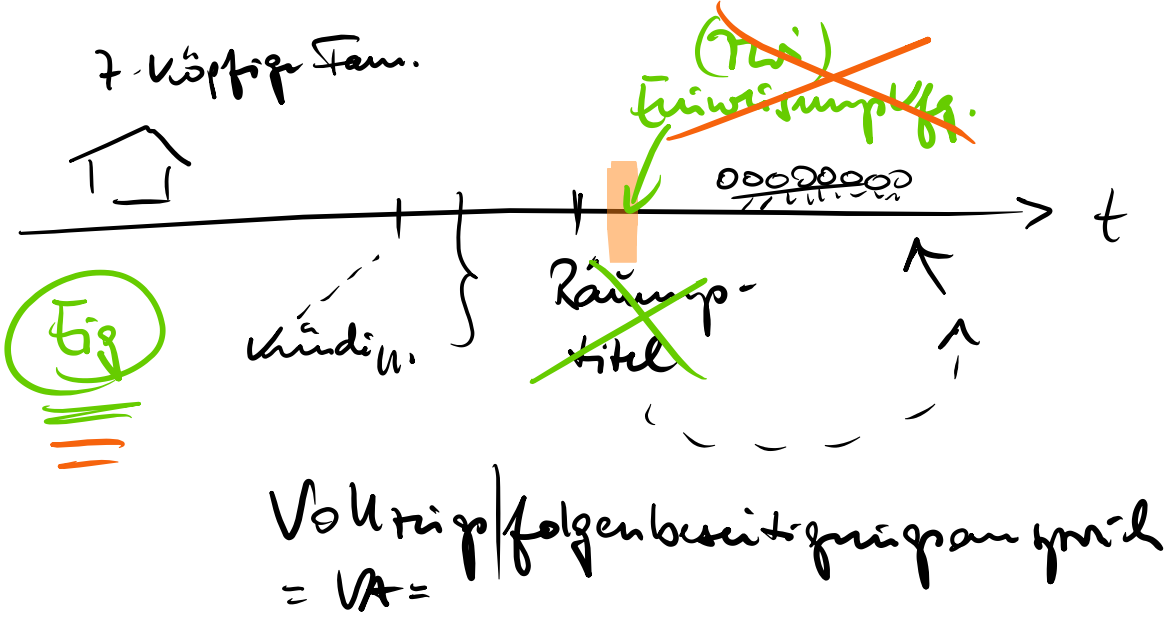 7-köpfige Fam.
Einweisungsvfg.
t
Eig
Kündig.
Räumungs-
titel
Vollzugs|folgenbeseitigungsanspruch
= VA =